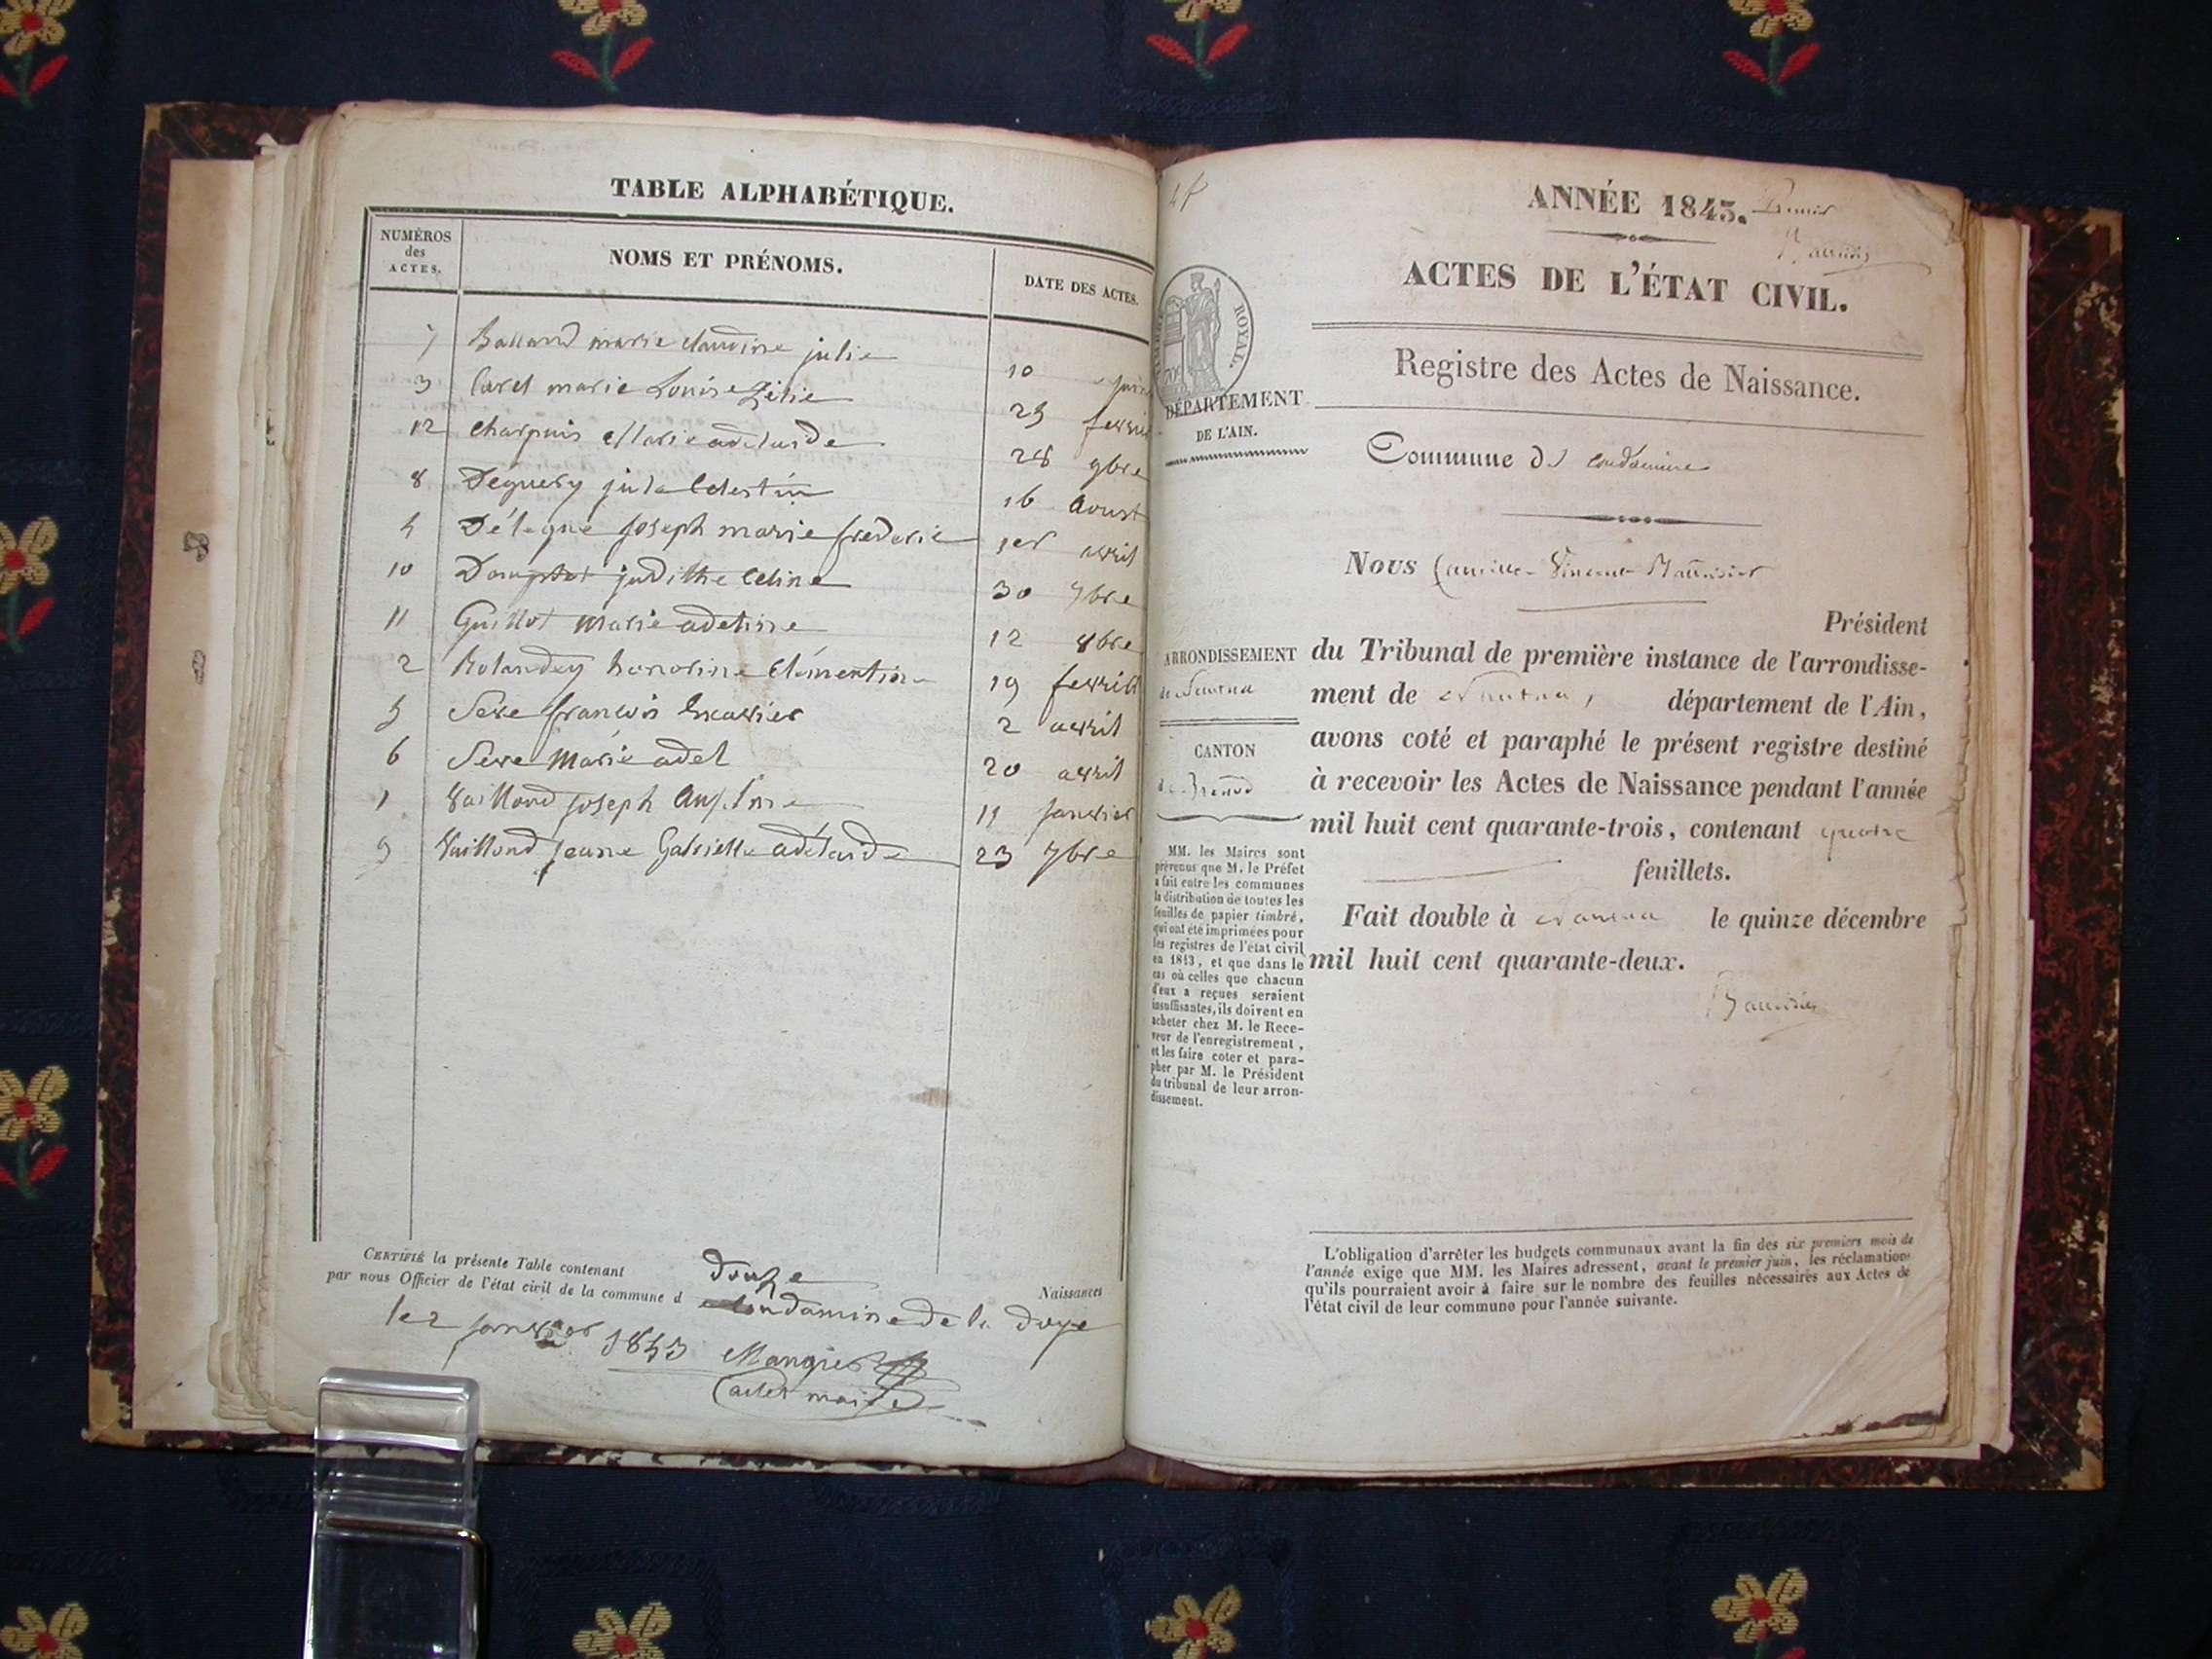 TABLE ALPHABÉTIQUE.
NUMÉROS
des
ACTES.
NOMS ET PRÉNOMS.
DATE DES ACTES.
7 Balland marie claudine julie 10 juin
3 Carel marie Louise Zelie 25
12 charpuis Marie adelaide 28 9bre
8 Déguery 16 Aoust
4 Déléque joseph marie frederic 1er avril
10 judithe Celine 30 7bre
11 Guillot marie adeline 12 8bre
2 Rolandey honorine Clémentine 19
5 Seve françois 2 avril
6 Seve Marie adel 20 avril
1 Vailloud joseph 11 janvier
9 Vailloud jeane Gabrielle adélaide 23 7bre
CERTIFIÉ la présente Table contenant douze Naissances
par nous Officier de l'état civil de la commune d condamine de la doye
le 2 janvier 1843 Mangier
maire
ANNÉE 1843.
ACTES DE L'ÉTAT CIVIL.
Registre des Actes de Naissance.
TIMBRE ROYAL.
DÉPARTEMENT
DE L'AIN.
Commune de condamine
Nous Vincent
Président
ARRONDISSEMENT
de Nantua
CANTON
de Brénod
du Tribunal de première instance de l'arrondisse-
ment de Nantua, département de l'Ain,
avons coté et paraphé le présent registre destiné
à recevoir les Actes de Naissance pendant l'année
mil huit cent quarante-trois, contenant quatre
feuillets.
Fait double à Nantua le quinze décembre
mil huit cent quarante-deux.
MM. les Maires sont
prévenus que M. le Préfet
a fait entre les communes
la distribution de toutes les
feuilles de papier timbré,
qui ont été imprimées pour
les registres de l'état civil
en 1843, et que dans le
cas où celles que chacun
d'eux a reçues seraient
insuffisantes, ils doivent en
acheter chez M. le Rece-
veur de l'enregistrement,
et les faire coter et para-
pher par M. le Président
du tribunal de leur arron-
dissement.
L'obligation d'arrêter les budgets communaux avant la fin des six premiers mois de
l'année exige que MM. les Maires adressent, avant le premier juin, les réclamations
qu'ils pourraient avoir à faire sur le nombre des feuilles nécessaires aux Actes de
l'état civil de leur commune pour l'année suivante.